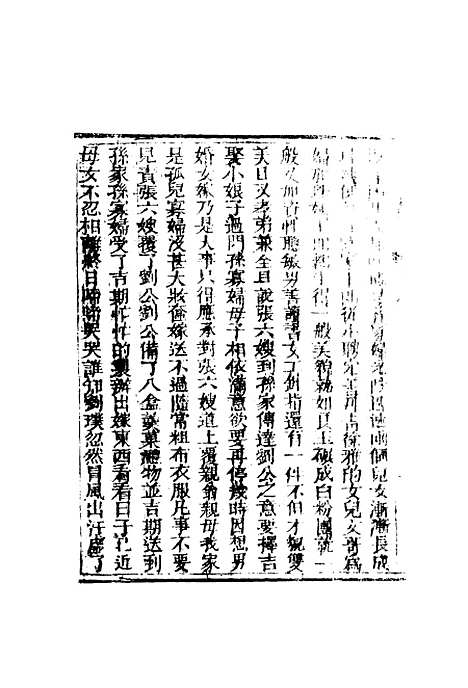 兩個兒女漸漸長成
定善丹青徐雅的女兒文哥為
婦姐生得一般美貌就如良玉碾成白粉團就一
般又加資性聰敏男善讀書女工針指還有一件不但才貌雙
美且又孝弟兼全且說張六嫂到孫家傳達劉公之意要擇吉
娶小娘子過門孫寡婦母子相依滿意欲要再停幾時因想男
婚女嫁乃是大事只得應承對張六嫂道上覆親翁親母我家
是孤兒寡婦沒甚大妝奩嫁送不過隨常粗布衣服凡事不要
見責張六嫂覆了劉公劉公備了八盒羹菓禮物並吉期送到
孫家孫寡婦受了吉期忙忙的製辦出嫁東西看看日子已近
母女不忍相離終日啼啼哭哭誰知劉璞忽然冒風出汗虛了